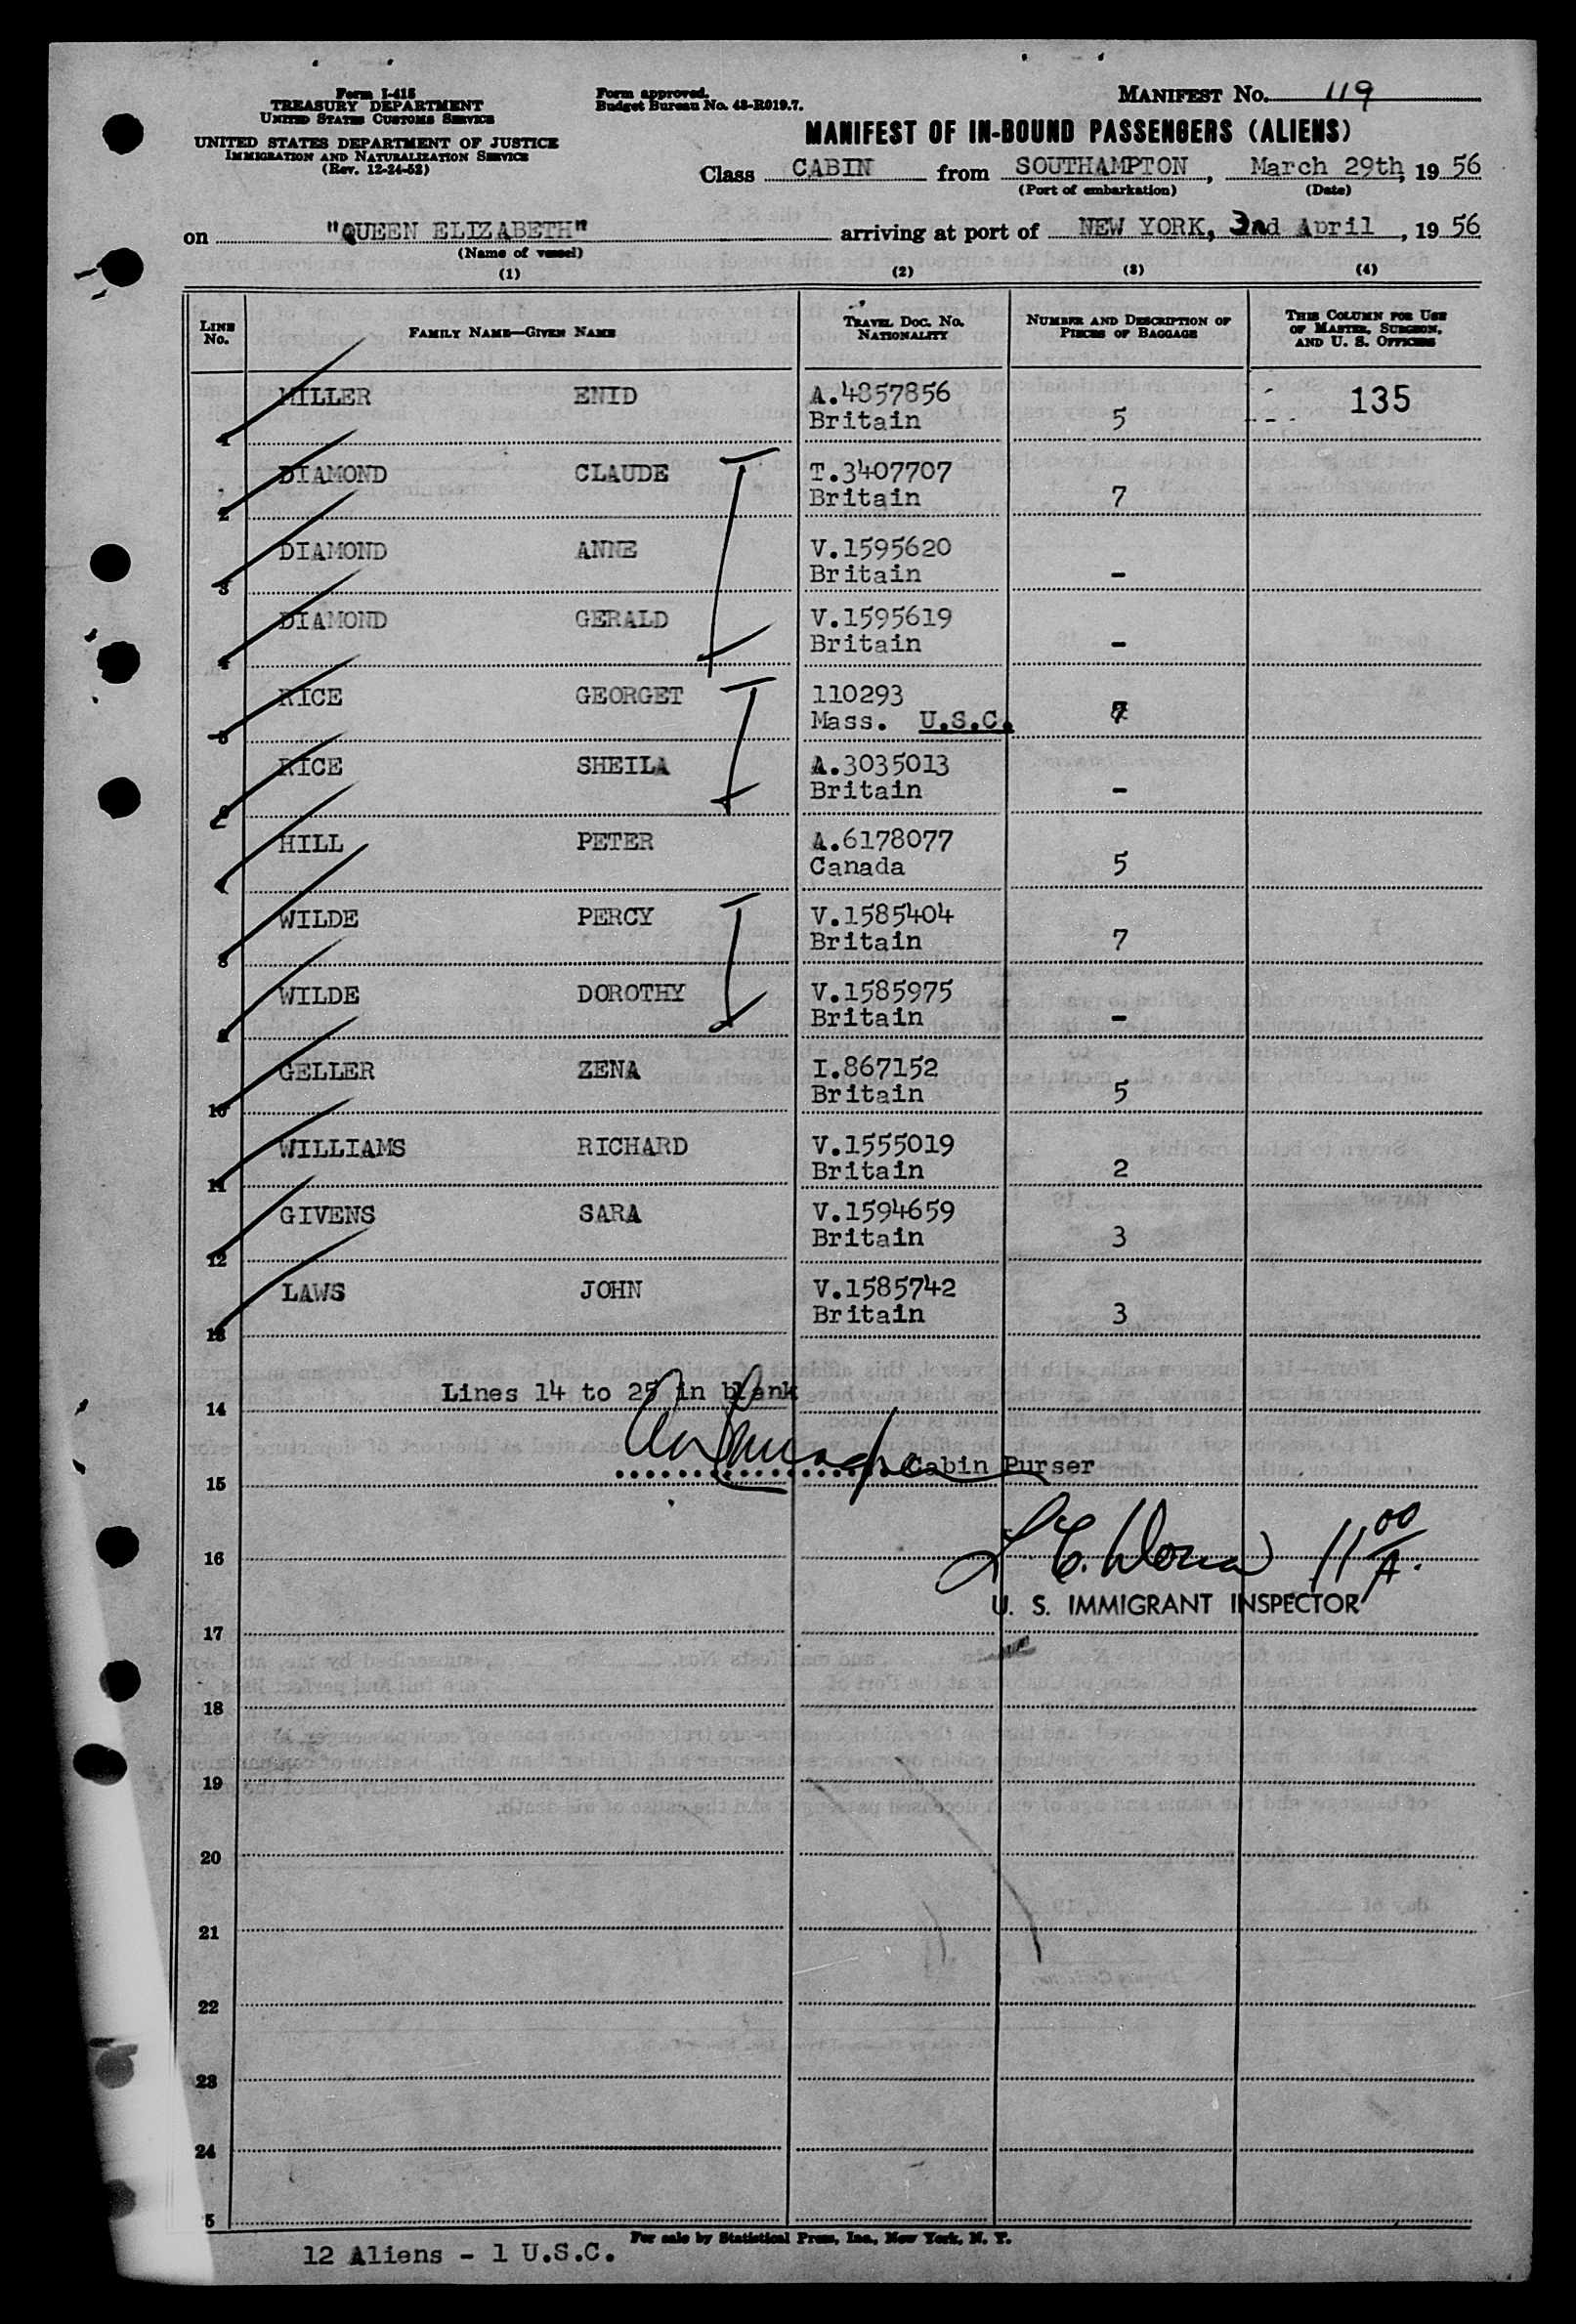 Form I-415
TREASURY DEPARTMENT
UNITED STATES CUSTOMS SERVICE
UNITED STATES DEPARTMENT OF JUSTICE
IMMIGRATION AND NATURALIZATION SERVICE
(Rev. 12-24-52)
Form approved.
Budget Bureau No. 43-R019.7.
MANIFEST No. 119
MANIFEST OF IN-BOUND PASSENGERS (ALIENS)
Class CABIN from SOUTHAMPTON, March 29th, 1956
(Port of embarkation) (Date)
on "QUEEN ELIZABETH" arriving at port of NEW YORK, 3nd April, 1956
(Name of vessel)
(1) (2) (3) (4)
LINE No. FAMILY NAME—GIVEN NAME TRAVEL DOC. NO. NATIONALITY NUMBER AND DESCRIPTION OF PIECES OF BAGGAGE THIS COLUMN FOR USE OF MASTER, SURGEON, AND U. S. OFFICERS
1 MILLER ENID A.4857856 135
Britain 5
2 DIAMOND CLAUDE T.3407707
Britain 7
3 DIAMOND ANNE V.1595620
Britain -
4 DIAMOND GERALD V.1595619
Britain -
5 RICE GEORGET 110293
Mass. U.S.C.
6 RICE SHEILA A.3035013
Britain -
7 HILL PETER A.6178077
Canada 5
8 WILDE PERCY V.1585404
Britain 7
9 WILDE DOROTHY V.1585975
Britain -
10 GELLER ZENA I.867152
Britain 5
11 WILLIAMS RICHARD V.1555019
Britain 2
12 GIVENS SARA V.1594659
Britain 3
13 LAWS JOHN V.1585742
Britain 3
Lines 14 to 25 in blank
14
Cabin Purser
15
16 11 00 A.
U. S. IMMIGRANT INSPECTOR
17
18
19
20
21
22
23
24
5
For sale by Statistical Press, Inc., New York, N. Y.
12 Aliens - 1 U.S.C.